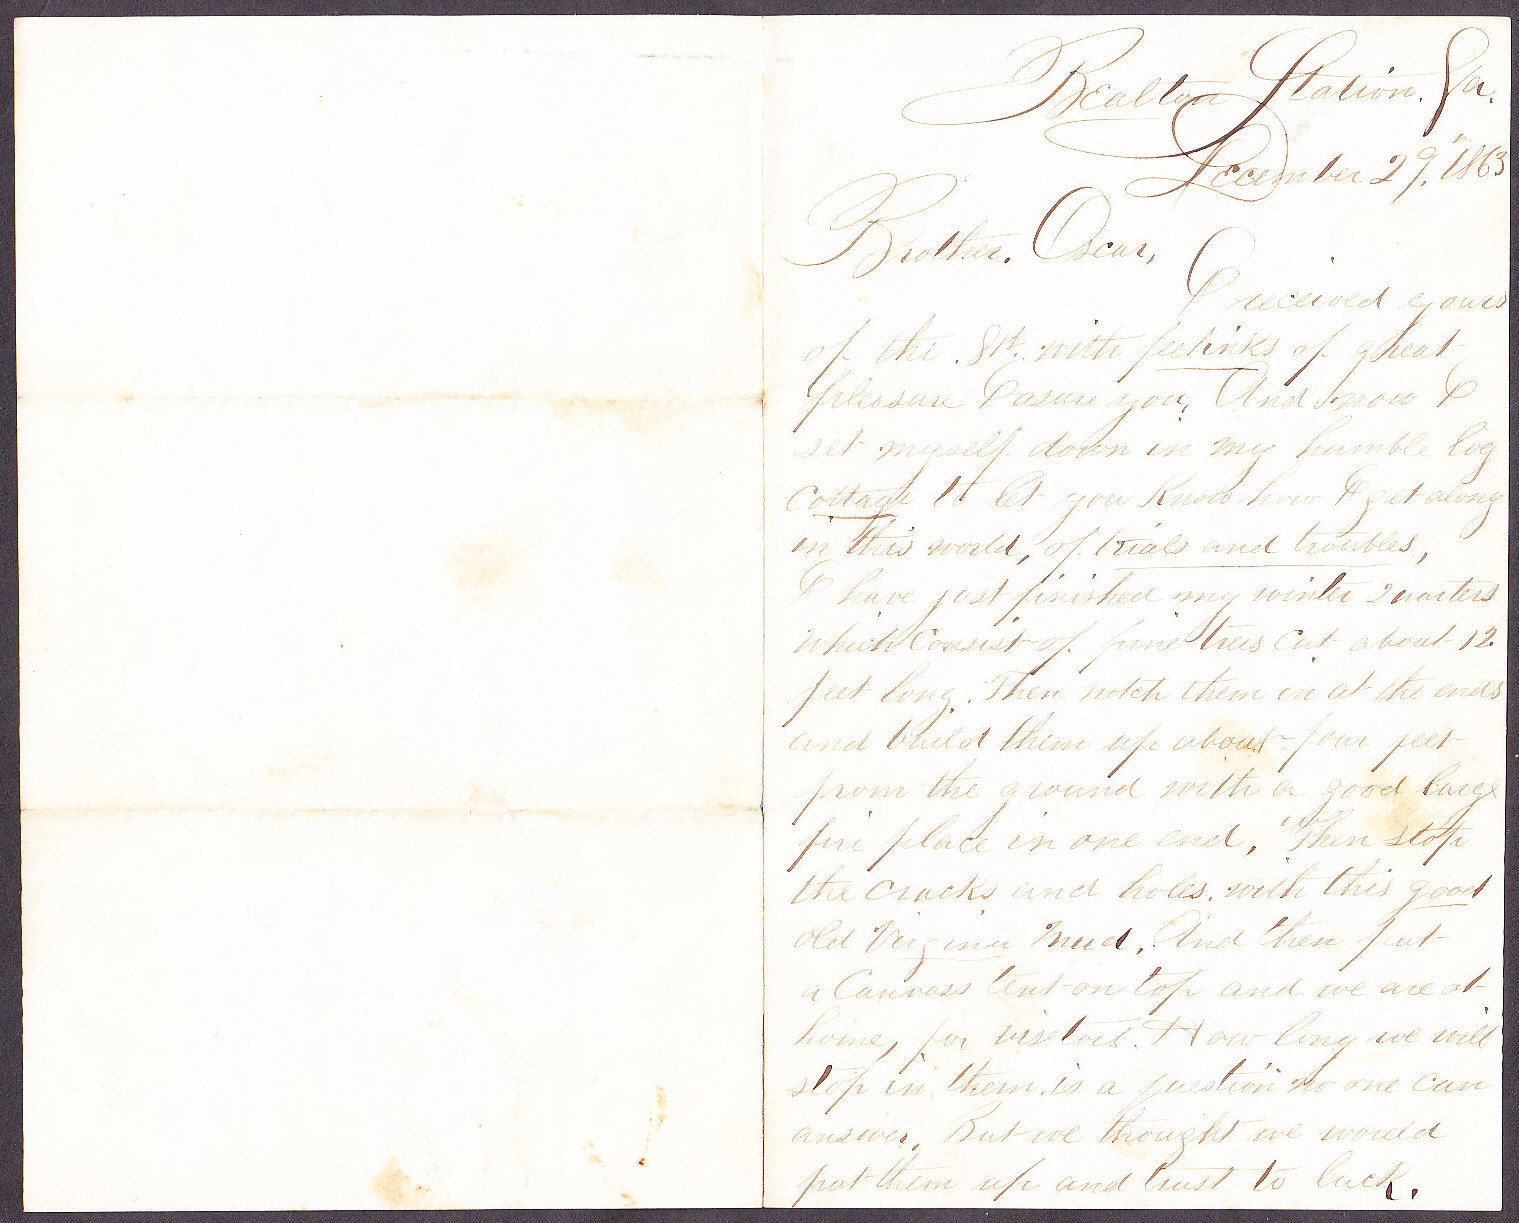 Bealton Station. Va.
December 29th, 1863
Brother. Oscar,
I received yours
of the 8th. with feelinks of great
pleasure I asure you, And now I
set myself down in my humble log
Cottage to let you Know how I get along
in this world, of trials and troubles,
I have just finished my winter quarters
which Consist of pine trees cut about 12
feet long. Then notch them in at the ends
and build them up about four feet
from the ground with a good large
fire place in one end, Then stop
the cracks and holes. with this good
old Virginia Mud, And then put
a Canvass tent on top and we are at
home, for visetors. How long we will
stop in them. is a question no one can
answer, But we thought we would
put them up and trust to luck.